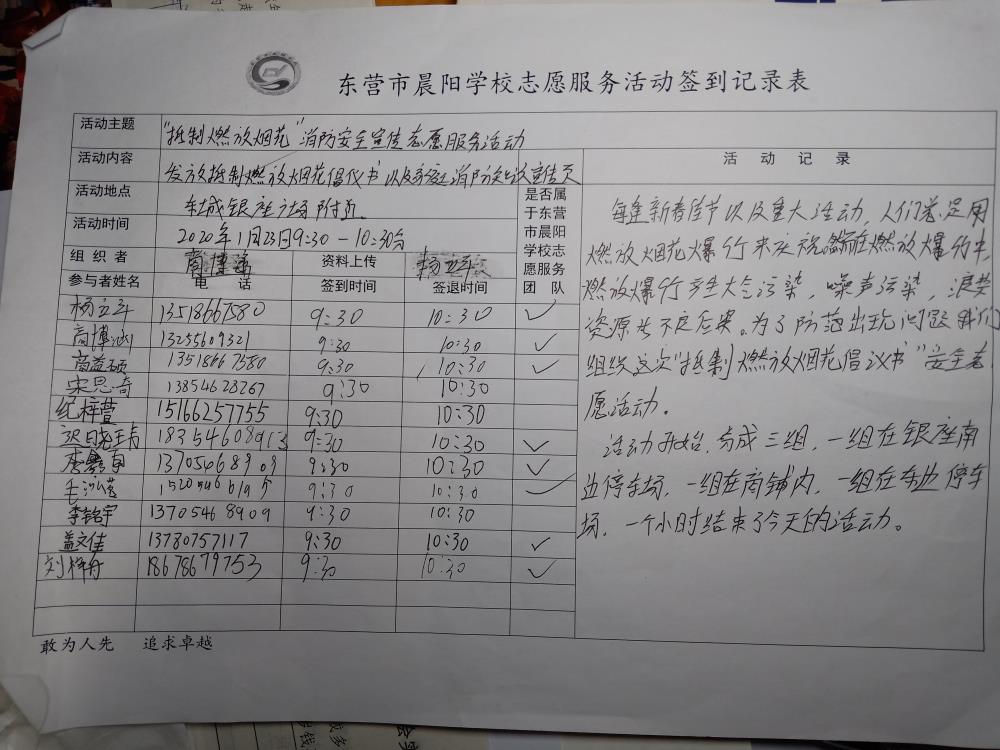 东营市晨阳学校志愿服务活动签到记录表
活动主题 "抵制燃放烟花"消防安全宣传志愿服务活动
活动内容 发放抵制燃放烟花倡议书以及 消防 宣传页
活动地点 东城银座广场附近。
活动时间 2020年1月23日9:30-10:30分
组织者 资料上传 杨立
是否属于东营市晨阳学校志愿服务团队
参与者姓名 电话 签到时间 签退时间
杨立 13518667580 9:30 10:30 ✓
高博涵 13255609321 9:30 10:30 ✓
高益硕 13518667580 9:30 10:30 ✓
宋思奇 13854628267 9:30 10:30
纪梓萱 15166257755 9:30 10:30
9:30 10:30 ✓
13705468909 9:30 10:30 ✓
毛 9:30 10:30 ✓
李铭宇 13705468909 9:30 10:30
盖文佳 13780757117 9:30 10:30 ✓
刘梓舟 18678679753 9:30 10:30 ✓
活动记录
每逢新春佳节以及重大活动,人们总是用
燃放烟花爆竹来庆祝,然而在燃放爆竹中,
燃放爆竹产生大气污染,噪声污染,浪费
资源等不良后果。为了防范出现问题我们
组织这次"抵制燃放烟花倡议书"安全志
愿活动。
活动开始,分成三组,一组在银座南
边停车场,一组在商铺内,一组在东边停车
场,一个小时结束了今天的活动。
敢为人先 追求卓越